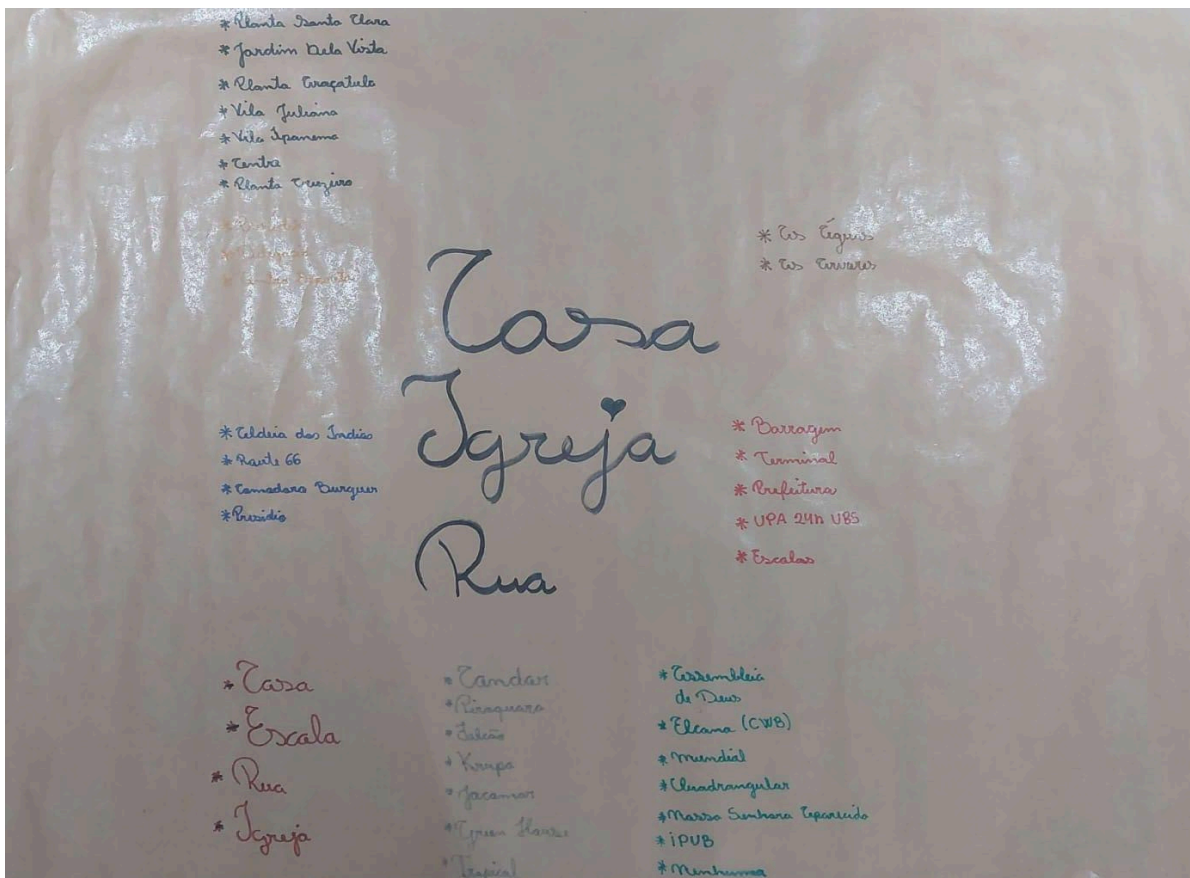 * Planta Santa Clara
* Jardim Bela Vista
* Planta Araçatuba
* Vila Juliana
* Vila Ipanema
* Centro
* Planta Cruzeiro
* As Águias
* As Árvores
Casa
Igreja
Rua
* Aldeia dos Índios
* Route 66
* Camadara Burguer
* Presídio
* Barragem
* Terminal
* Prefeitura
* UPA 24h UBS
* Escolas
* Casa
* Escola
* Rua
* Igreja
* Condor
* Piraquara
* Falcão
* Krupa
* Jacomar
* Green House
* Tropical
* Assembleia
de Deus
* Elcana (CWB)
* Mundial
* Quadrangular
* Nossa Senhora Aparecida
* iPUB
* Nenhuma